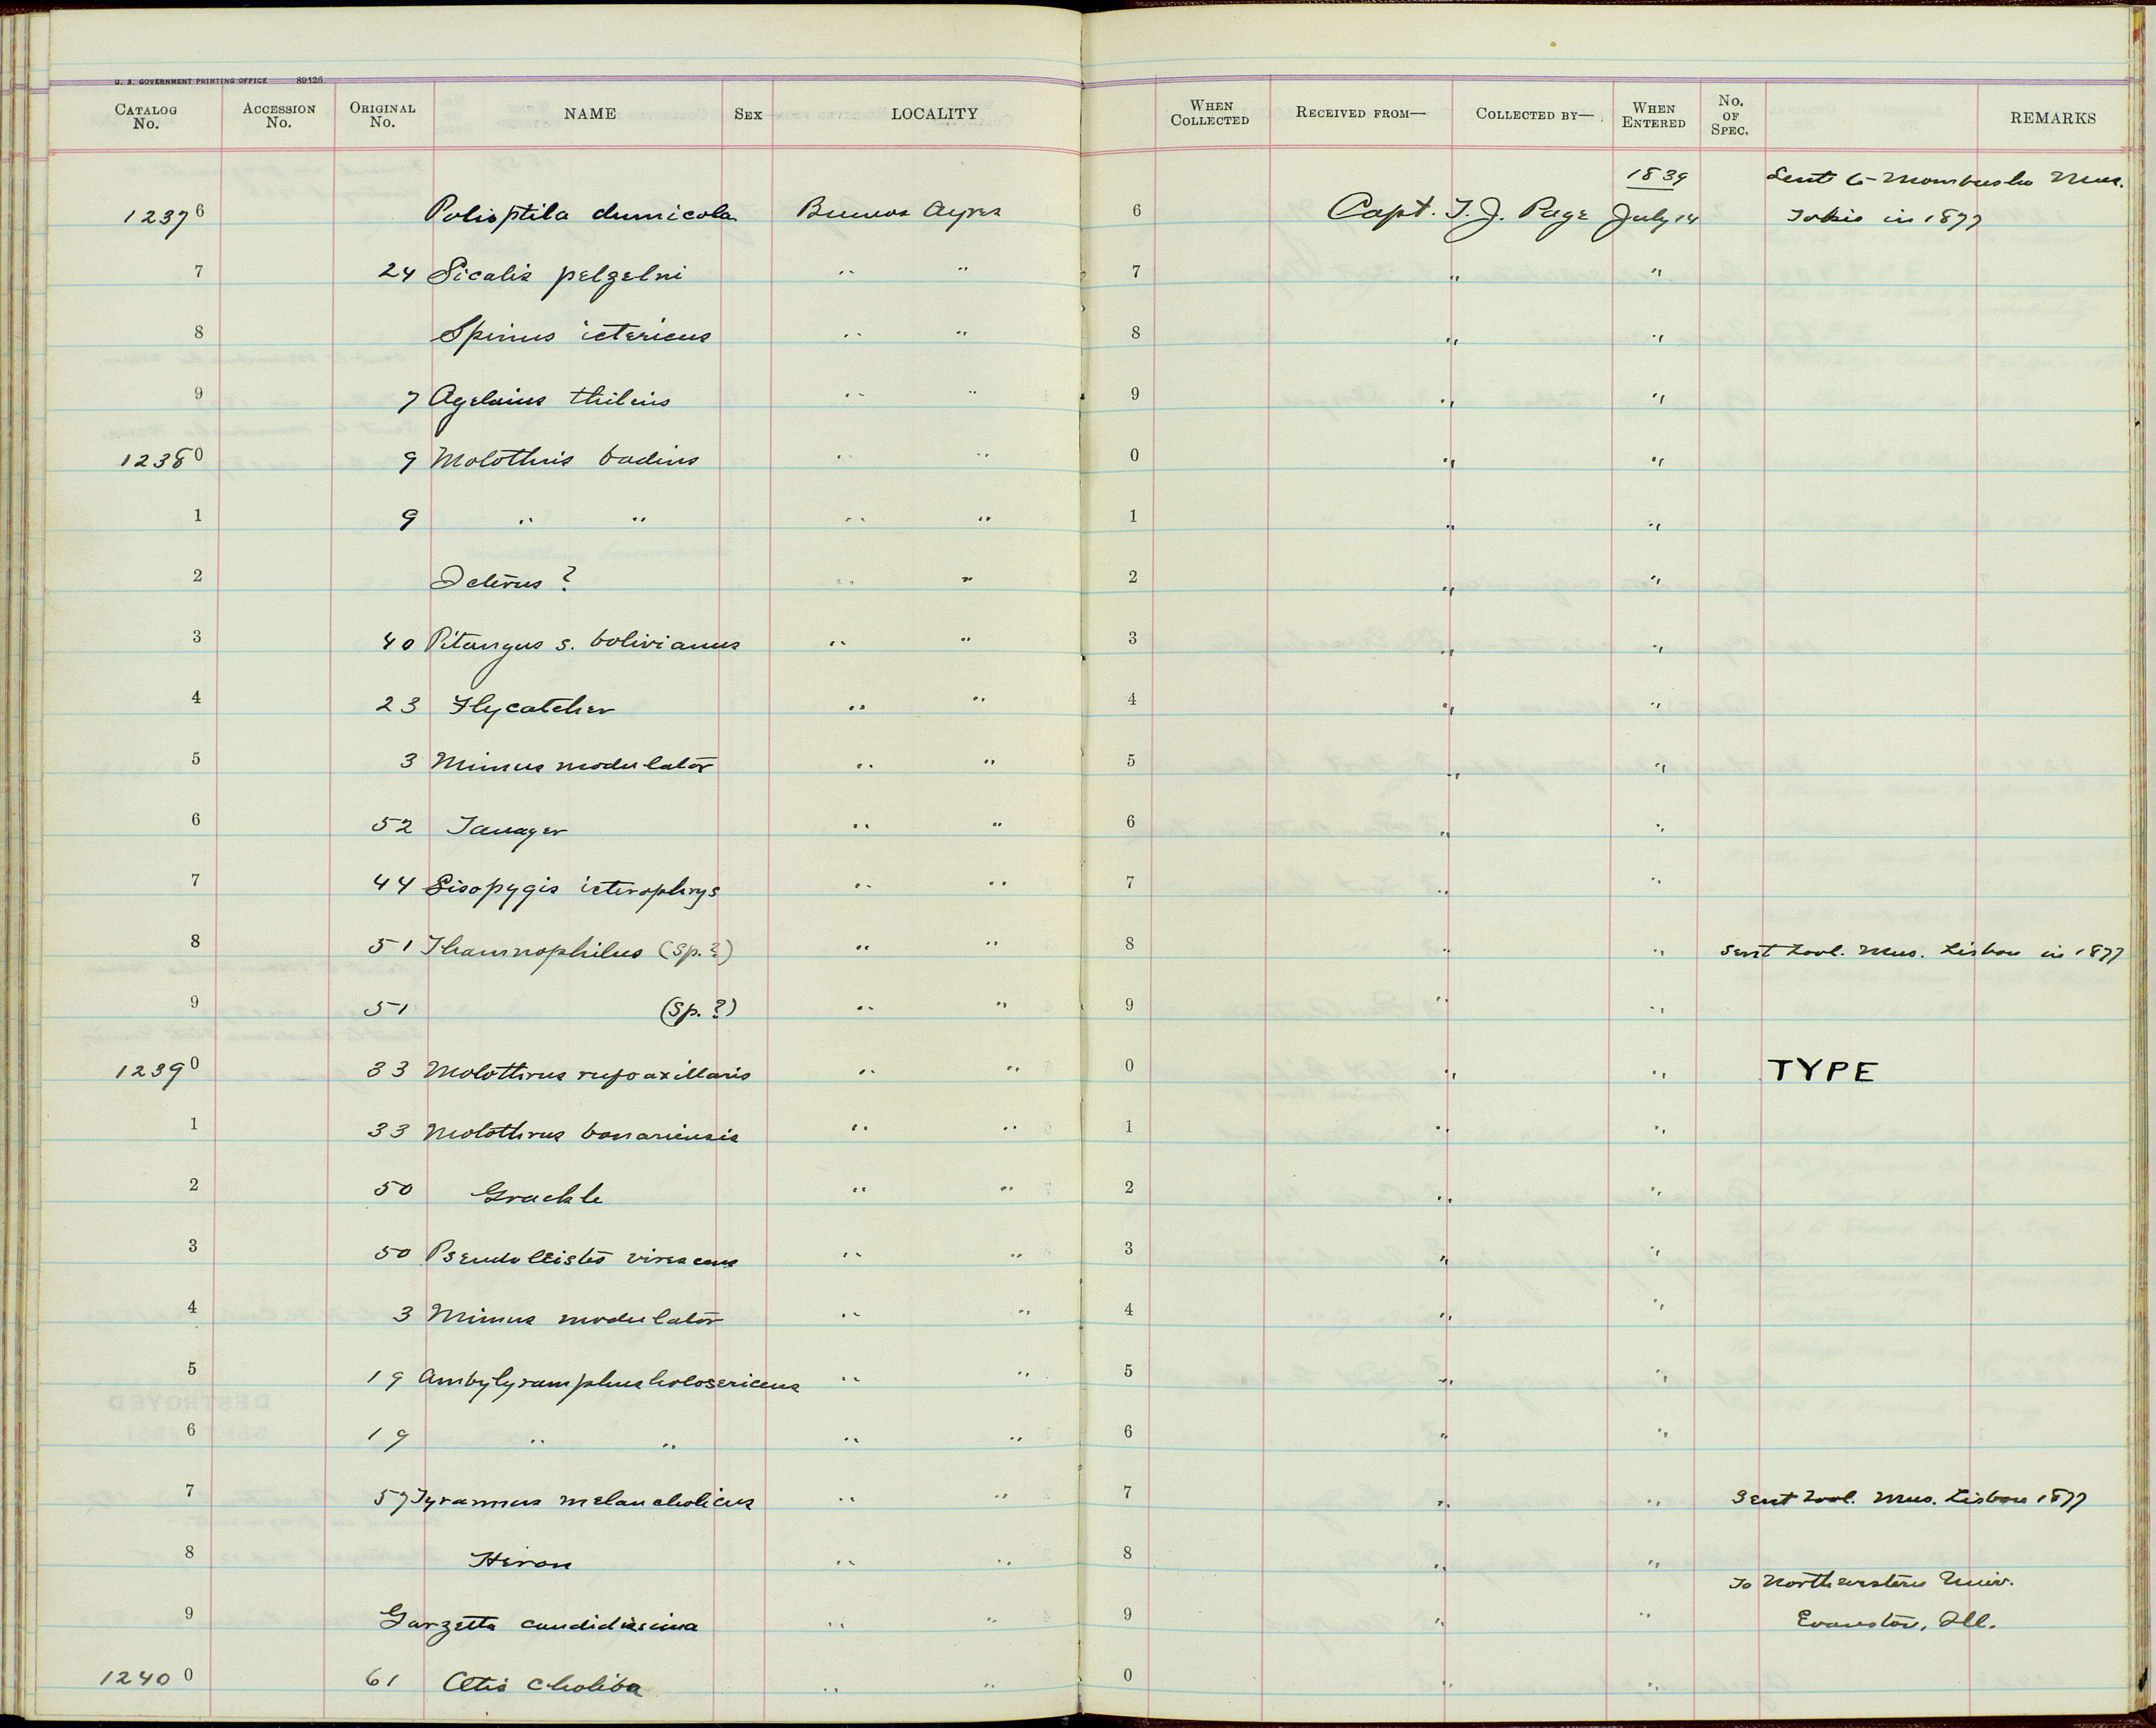 U. S. GOVERNMENT PRINTING OFFICE 89126
CATALOG No. ACCESSION No. ORIGINAL No. NAME SEX LOCALITY WHEN COLLECTED RECEIVED FROM— COLLECTED BY— WHEN ENTERED No. OF SPEC. REMARKS
1839 Sent to Mombusho Mus.
12376 Polioptila dumicola Buenos Ayres 6 Capt. T. J. Page July 14 Tokio in 1877
7 24 Sicalis pelzelni " " 7 " "
8 Spinus ictericus " " 8 " "
9 7 Agelaius thilius " " 9 " "
12380 9 Molothrus badius " " 0 " "
1 9 " " " " 1 " "
2 Icterus ? " " 2 " "
3 40 Pitangus s. bolivianus " " 3 " "
4 23 Flycatcher " " 4 " "
5 3 Mimus modulator " " 5 " "
6 52 Tanager " " 6 " "
7 44 Sisopygis icterophrys " " 7 " "
8 51 Thamnophilus (Sp.?) " " 8 " " Sent Zool. Mus. Lisbon in 1877
9 51 (Sp.?) " " 9 " "
12390 33 Molothrus rufoaxillaris " " 0 " " TYPE
1 33 Molothrus bonariensis " " 1 " "
2 50 Grackle " " 2 " "
3 50 Pseudoleistes virescens " " 3 " "
4 3 Mimus modulator " " 4 " "
5 19 Ambylyramphus holosericeus " " 5 " "
6 19 " " " " 6 " "
7 57 Tyrannus melancholicus " " 7 " " Sent Zool. Mus. Lisbon 1877
8 Heron " " 8 " "
To Northwestern Univ.
9 Garzetta candidissima " " 9 " " Evanston, Ill.
12400 61 Otis choliba " " 0 " "